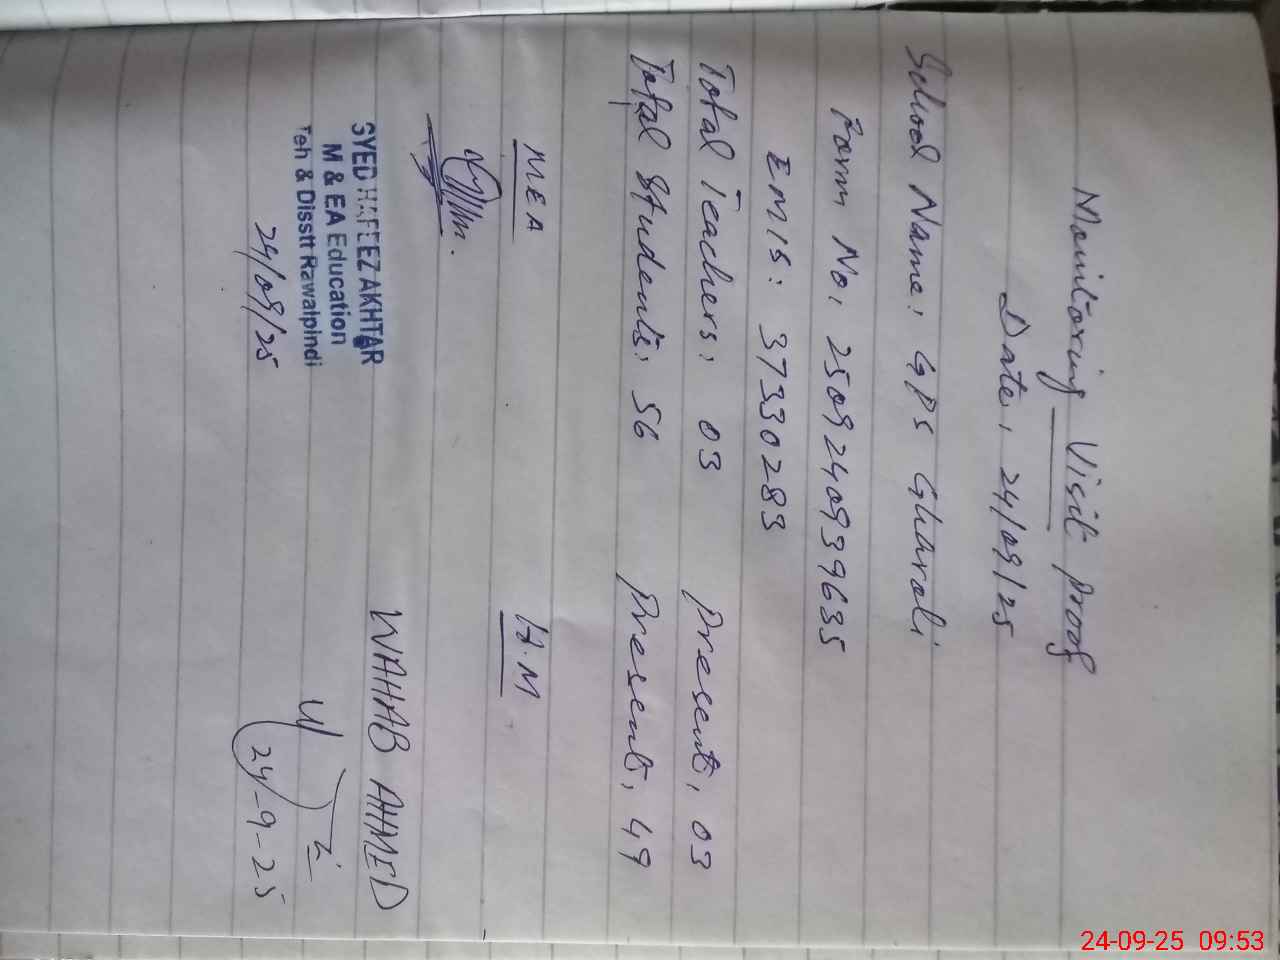 Monitoring Visit Proof
Date: 24/09/25
School Name: GPS Gharoli
Form No: 2509240939635
EMIS: 37330283
Total Teachers: 03 Present: 03
Total Students: 56 Present: 49
MEA H.M
SYED HAFEEZ AKHTAR
M & EA Education
Teh & Disstt Rawalpindi
24/09/25
WAHAB AHMED
24-9-25
24-09-25 09:53